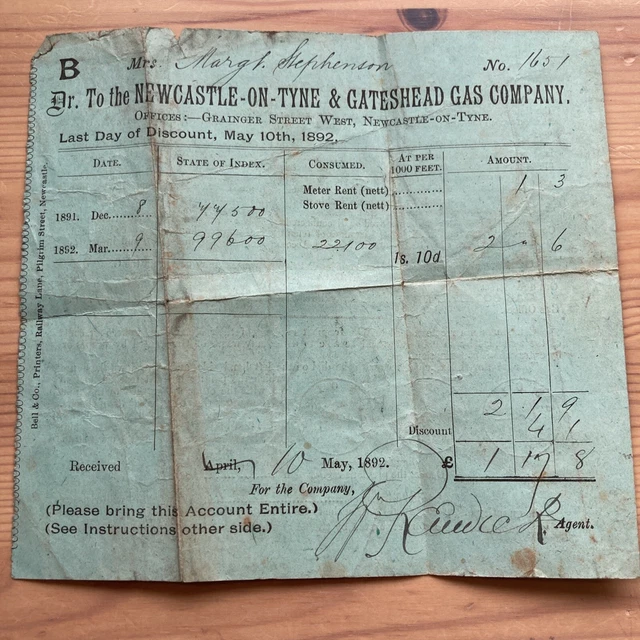 B Mrs. Margt. Stephenson No. 1651
Dr. To the NEWCASTLE-ON-TYNE & GATESHEAD GAS COMPANY.
OFFICES:—GRAINGER STREET WEST, NEWCASTLE-ON-TYNE.
Last Day of Discount, May 10th, 1892,
DATE. STATE OF INDEX. CONSUMED. AT PER 1000 FEET. AMOUNT.
Meter Rent (nett) 1 3
Stove Rent (nett)
1891. Dec. 8 77500
1892. Mar. 9 99600 22100 1s. 10d 2 0 6
2 1 9
Discount 4 1
Received April, 10 May, 1892. £ 1 17 8
For the Company,
(Please bring this Account Entire.)
(See Instructions other side.) Agent.
Bell & Co., Printers, Railway Lane, Pilgrim Street, Newcastle.